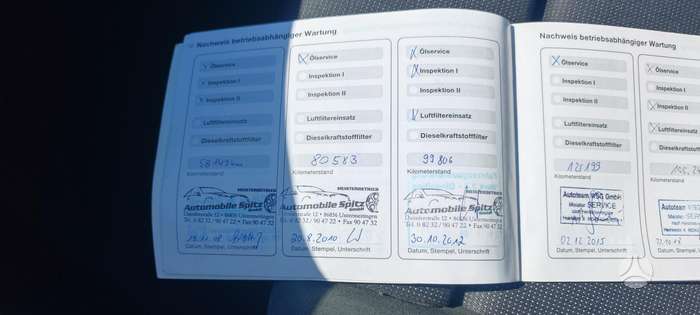 Nachweis betriebsabhängiger Wartung
Ölservice
Inspektion I
Inspektion II
Luftfiltereinsatz
Dieselkraftstofffilter
Kilometerstand
MEISTERBETRIEB
Automobile Spitz
GmbH
Tel. 0 82 32 / 90 47 22
Datum, Stempel, Unterschrift
Ölservice
Inspektion I
Inspektion II
Luftfiltereinsatz
Dieselkraftstofffilter
80583
Kilometerstand
MEISTERBETRIEB
Automobile Spitz
GmbH
Tel. 0 82 32 / 90 47 22 • Fax 90 47 32
20.8.2010
Datum, Stempel, Unterschrift
Ölservice
Inspektion I
Inspektion II
Luftfiltereinsatz
Dieselkraftstofffilter
99806
Kilometerstand
MEISTERBETRIEB
Automobile Spitz
GmbH
Tel. 0 82 32 / 90 47 22 • Fax 90 47 32
30.10.2012
Datum, Stempel, Unterschrift
Nachweis betriebsabhängiger Wartung
Ölservice
Inspektion I
Inspektion II
Luftfiltereinsatz
Dieselkraftstofffilter
125199
Kilometerstand
Autoteam WSG GmbH
SERVICE
02.12.2015
Datum, Stempel, Unterschrift
Ölservice
Inspektion
Inspektion
Luftfilter
Dieselkraft
Kilometerstand
Autoteam
Datum, Stempel